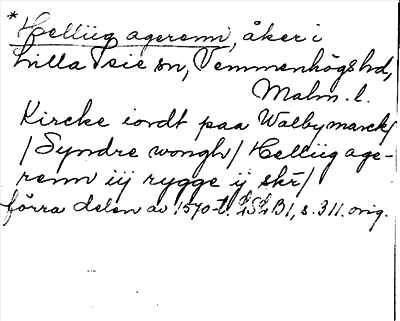 * Hellüg agerenn, åker i
Lilla Beie sn, Vemmenhögs hd,
Malm. l.
Kircke iordt paa Walby marck/
/Syndre wongh/ Hellüg age-
renn iij rygge ij skr/
förra delen av 1570-t. LSLB1, s. 311. orig.